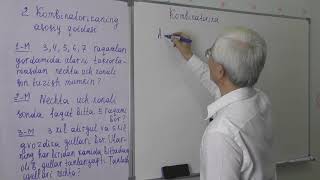 2 Kombinatorikaning
asosiy qoidasi
1-M 3,4,5,6,7 raqamlari
yordamida ularni takrorla-
masdan nechta uch xonali
son tuzish mumkin?
2-M Nechta uch xonali
sonda faqat bitta 5 raqami
bor?
3-M 3 xil atirgul va 4 xil
gvozdika gullari bor. Ular-
ning har biridan kamida bittadan
olib, gullar tanlanyapti. Tanlash
usullari nechta?
Kombinatorika
A